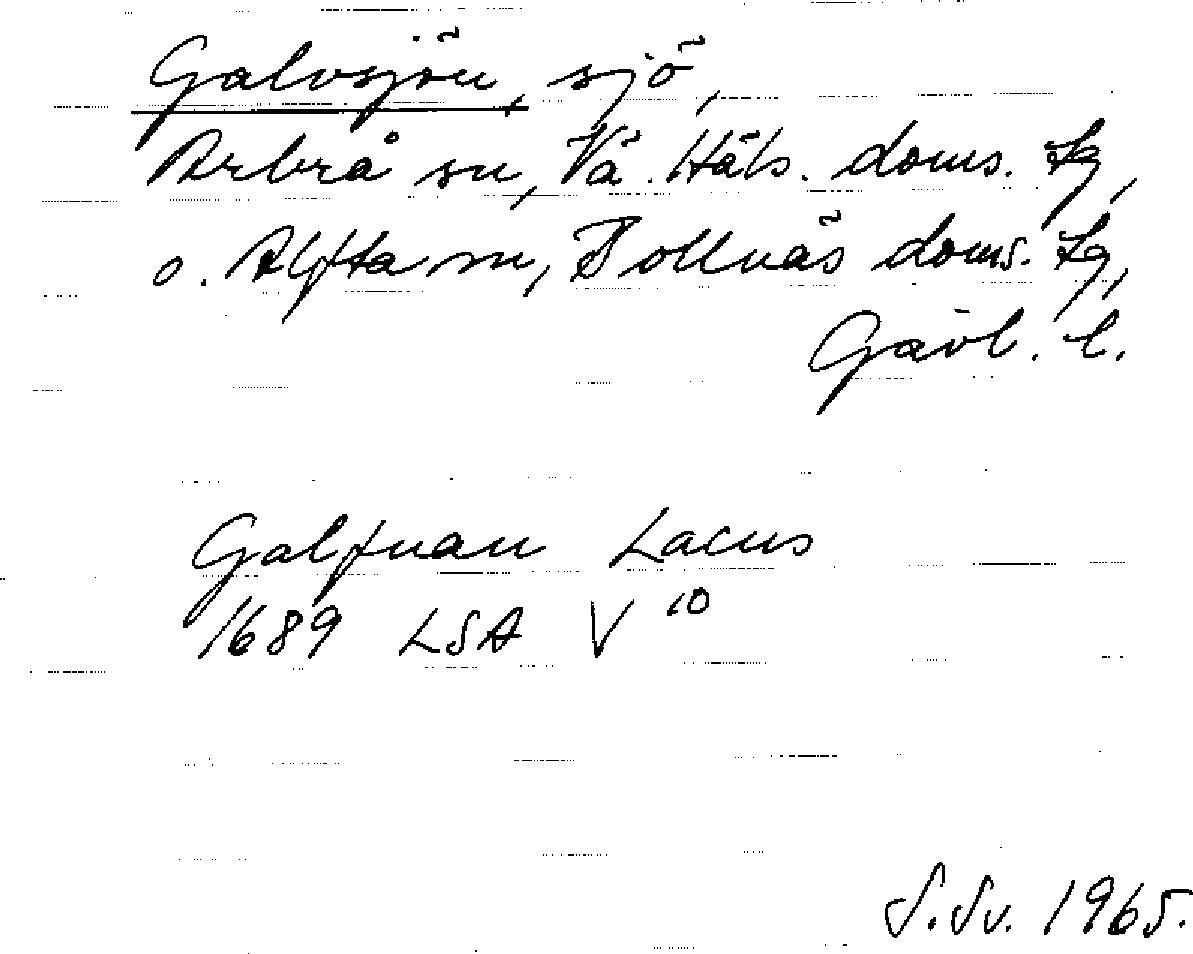 Galvsjön, sjö,
Arbrå sn, Vä. Häls. doms. Lg,
o. Alfta sn, Bollnäs doms. Lg,
Gävl. l.
Galfnan Lacus
1689 LSA V 10
S. Sv. 1965.